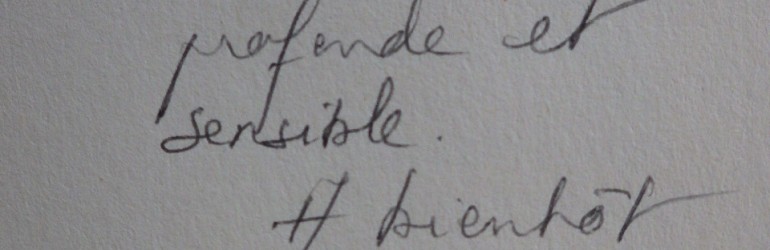 profonde et
sensible.
A bientôt